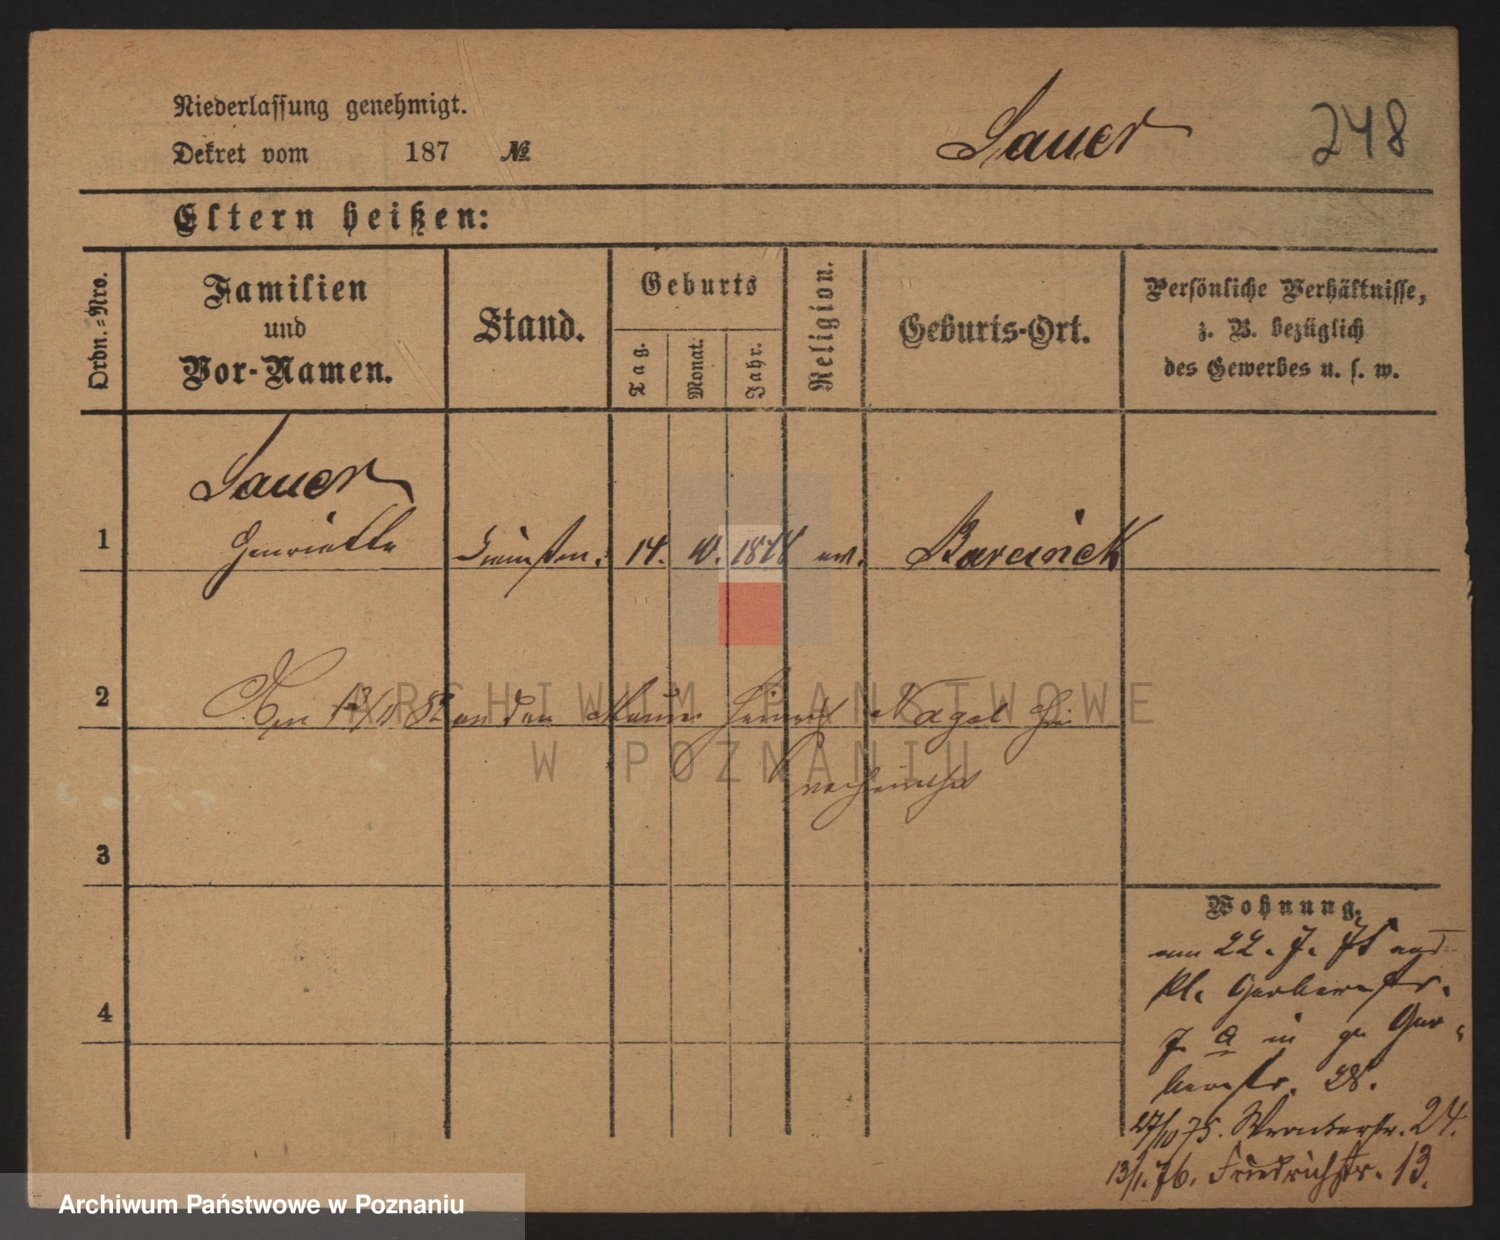 Niederlassung genehmigt.
Dekret vom 187 №
Sauer
248
Eltern heißen:
Ordn.=Nro.
Familien
und
Vor-Namen.
Stand.
Geburts
Tag.
Monat.
Jahr.
Religion.
Geburts-Ort.
Persönliche Verhältnisse,
z. B. bezüglich
des Gewerbes u. s. w.
Sauer
1 Henriette 14. ev. Barcinek
2 an den Maurer Nagel
verheirathet
3
4
Wohnung.
22. 7. 75
Kl. Gerberstr.
7 a in gr. Ger-
berstr. 28.
27/10 75. Wronkerstr. 24.
13/1. 76. Friedrichstr. 13.
ARCHIWUM PAŃSTWOWE
W POZNANIU
Archiwum Państwowe w Poznaniu